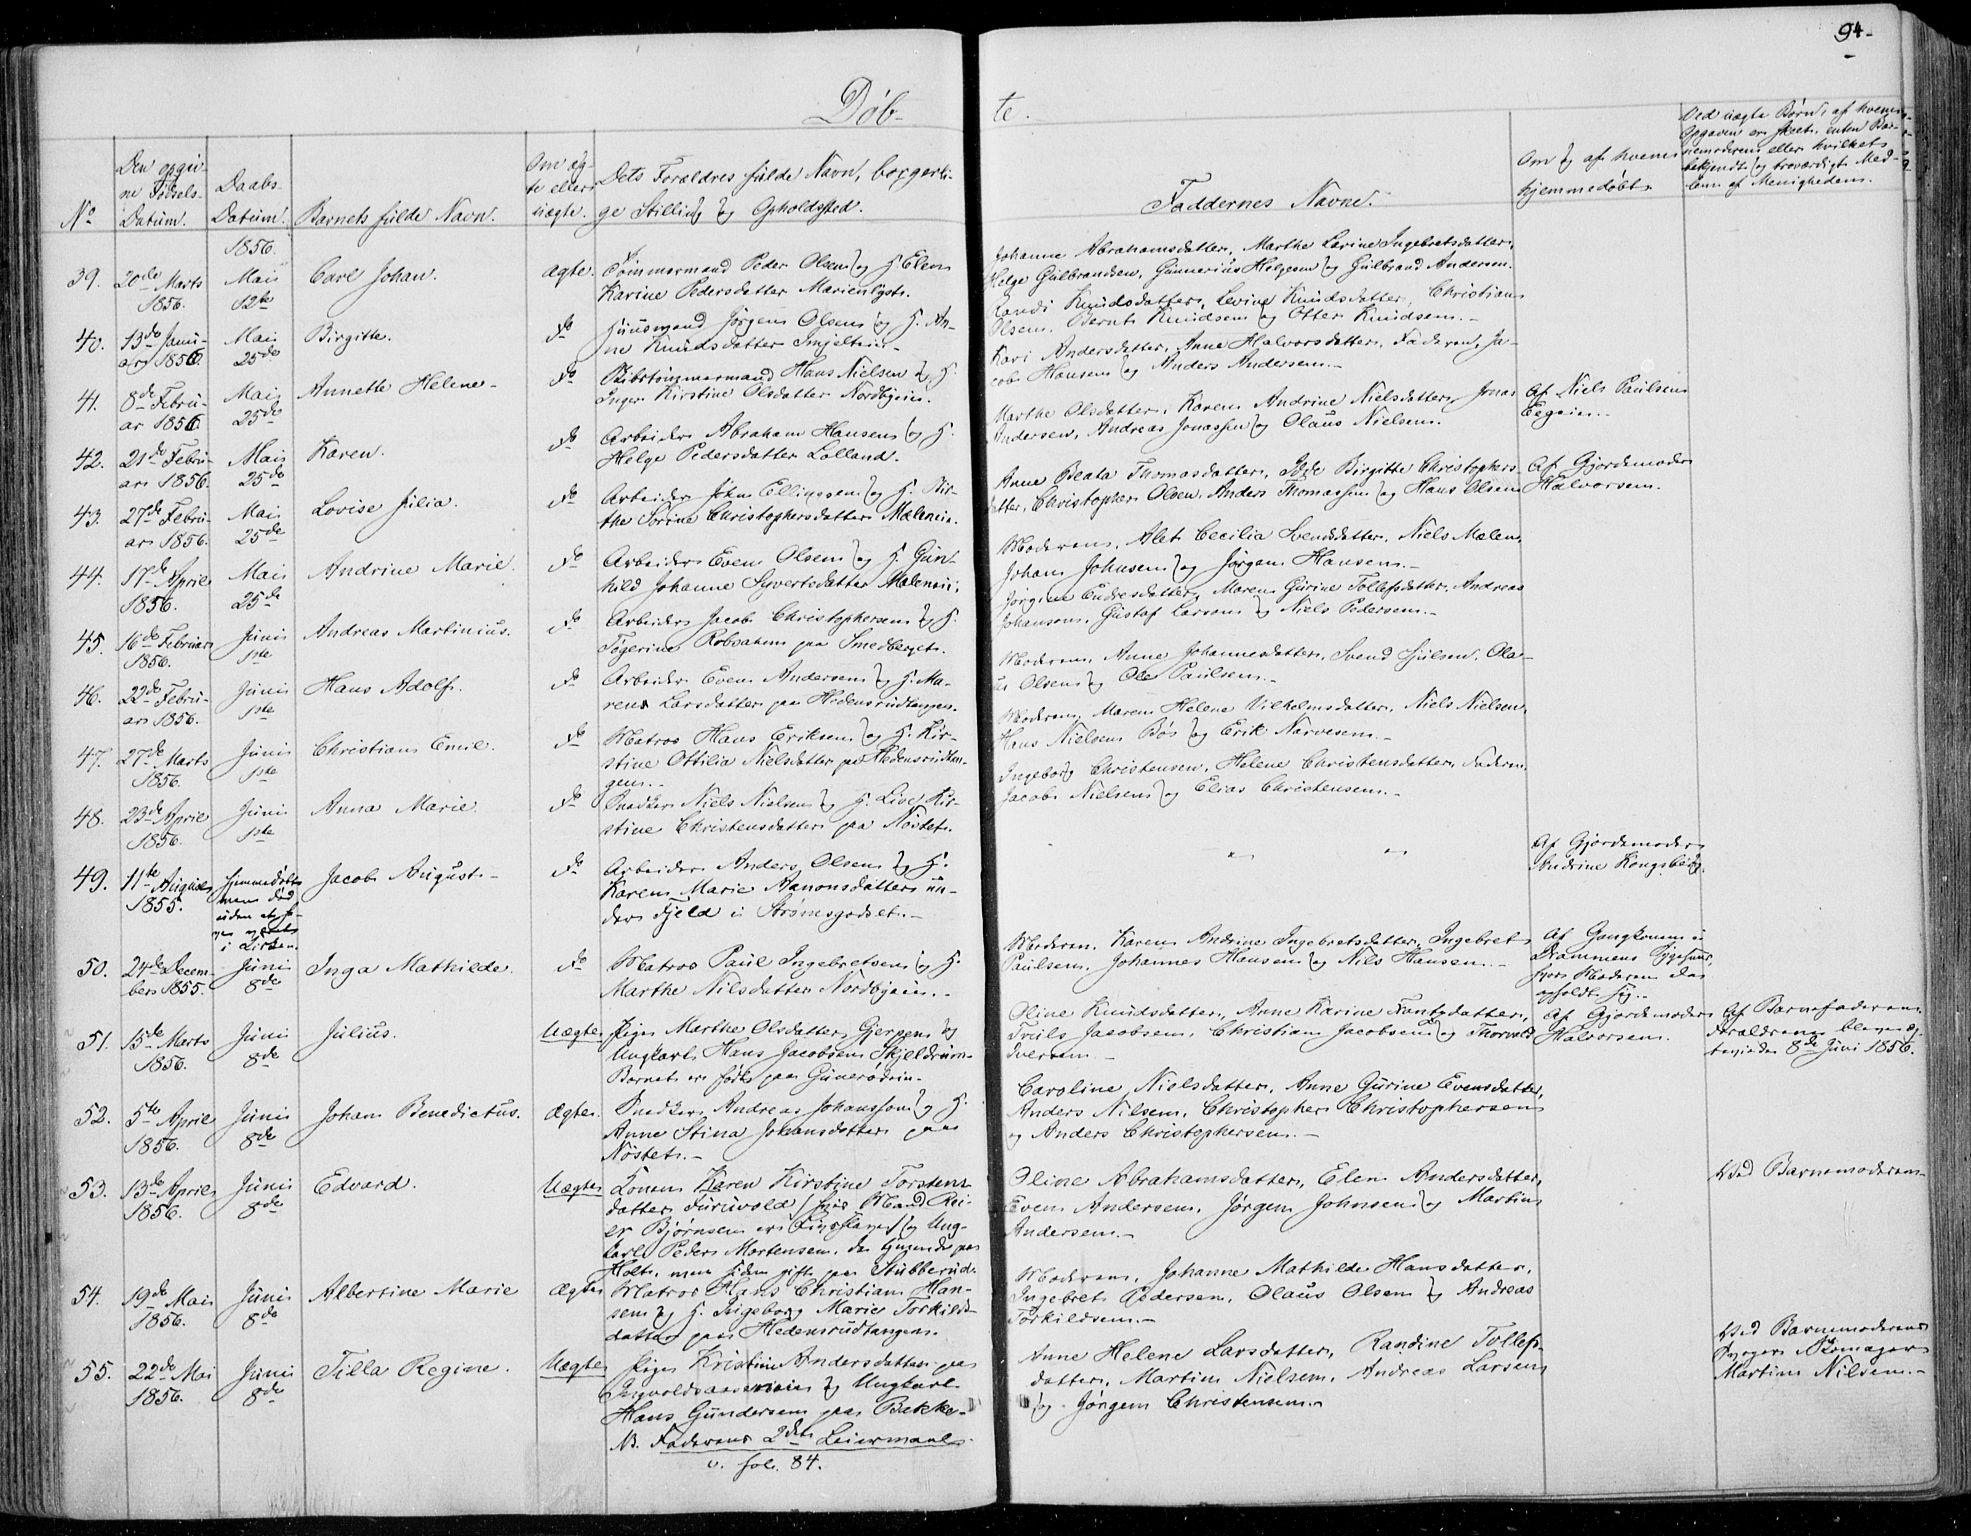 94.
Døb-
te.
No
Den opgiv-
ne Fødsels-
Datum.
Daabs-
Datum.
Barnets fulde Navn.
Om æg-
te eller
uægte.
Dets Forældres fulde Navn, borgerli-
ge Stilling og Opholdssted.
Faddernes Navne.
Om og af hvem
hjemmedøbt.
Ved uægte Børn, af hvem
Opgaven er skeet, enten Bar-
nemoderen eller hvilket
bekjendt og troværdigt Med-
lem af Menigheden.
1856.
39.
20de Marts
1856.
Mai
12te
Carl Johan.
Ægte.
Tømmermand Peder Olsen og H. Elen
Karine Pedersdatter Marienlyst.
Johanne Abrahamsdatter, Marthe Lovine Ingebretsdatter,
Helge Gulbrandsen, Gunnerius Helgesen og Gulbrand Andersen.
40.
13de Janu-
ar 1856.
Mai
25de
Birgitte.
do
Huusmand Jørgen Olsen og H. An-
ne Knudsdatter
Randi Knudsdatter, Levine Knudsdatter, Christian
Olsen, Bernt Knudsen og Otter Knudsen.-
41.
8de Febru-
ar 1856
Mai
25de
Annette Helene.
do
Skibstømmermand Hans Nielsen og H.
Inger Kirstine Olsdatter Nordbyeie.
Kari Andersdatter, Anne Halvorsdatter, Faderen, Ja-
cob Hansen og Anders Andersen.-
42.
21de Febru-
ar 1856.
Mai
25de
Karen.
do
Arbeider Abraham Hansen og H.
Helge Pedersdatter Lolland.
Marthe Olsdatter, Karen Andrine Nielsdatter, Jonas
Andersen, Andreas Jonassen og Olaus Nielsen.
Af Niels Paulsen
Egeie.
43.
27de Febru-
ar 1856.
Mai
25de
Lovise Julia.
do
Arbeider John Ellingsen og H. Bir-
the Sorine Christophersdatter Mæleneie.
Anne Beata Thomasdatter, Birgitte Christophers-
datter, Christopher Olsen, Anders Thomassen og Hans Olsen
Af Gjordemoder
Halvorsen.
44.
17de April
1856.
Mai
25de
Andrine Marie.
do
Arbeider Even Olsen og H. Gun-
hild Johanne Syvertsdatter Mæleneie.
Moderen, Alet Cecilia Svendsdatter, Niels Mælen,
Johan Johnsen og Jørgen Hansen.-
45.
16de Februar
1856.
Juni
1ste
Andreas Martinius.
do
Arbeider Jacob Christophersen og H.
Robsahm paa Smedberget.
Jørgine Endresdatter, Maren Gurine Tollefsdatter, Andreas
Johansen, Gustaf Larsen og Niels Pedersen.-
46.
22de Febru-
ar 1856.
Juni
1ste
Hans Adolf.
do
Arbeider Even Andersen og H. Ma-
ren Larsdatter paa Hedensrudtangen.
Moderen, Anne Johannesdatter, Svend Hjulsen, Ola-
us Olsen og Ole Paulsen.-
47.
27de Marts
1856.
Juni
1ste
Christian Emil.
do
Matros Hans Eriksen og H. Kir-
stine Ottilia Nielsdatter paa Hedensrudtan-
gen.
Moderen, Maren Helene Vilhelmsdatter, Niels Nielsen,
Hans Nielsen Bøe og Erik Narvesen.-
48.
23de April
1856.
Juni
1ste
Anna Marie.
do
Snedker Niels Nielsen og H. Live Kir-
stine Christensdatter paa Nøstet.
Ingeborg Christensen, Helene Christensdatter, Faderen,
Jacob Nielsen og Elias Christensen.-
49.
11te August
1855.
Hjemmedøbt
men død
uden at
i Kirken.
Jacob August.-
do
Arbeider Anders Olsen og H.
Karen Marie Aanonsdatter un-
der Fjeld i Strømsgodset.-
" "
Af Gjordemoder
Andrine Kongsberg.
50.
24de Decem-
ber 1855.
Juni
8de
Inga Mathilde.
do
Matros Paul Ingebretsen og H.
Marthe Nilsdatter Nordbyeie.-
Moderen, Karen Andrine Ingebretsdatter, Ingebret
Paulsen, Johannes Hansen og Nils Hansen.-
Af Gangkonen i
Drammens Sygehuus,
hvor Moderen da
opholdt sig.-
51.
15de Marts
1856.
Juni
8de
Julius.
Uægte
Pige Marthe Olsdatter, Gjerpen og
Ungkarl Hans Jacobsen Skjeldrum.
Barnet er født paa Gunerødeie.
Oline Knudsdatter, Anne Karine Frantzdatter,
Troils Jacobsen, Christian Jacobsen og Thorvald
Iversen.-
Af Gjordemoder
Halvorsen.
Af Barnefaderen.
Forældrene bleve æg-
teviede 8de Juni 1856.
52.
5te April
1856.
Juni
8de
Johan Benedictus.
Ægte.
Snedker Andreas Johansson og H.
Anne Stina Johansdatter paa
Nøstet.-
Caroline Nielsdatter, Anne Gurine Evensdatter,
Anders Nilsen, Christopher Christophersen
og Anders Christophersen.-
53.
13de April
1856.
Juni
8de
Edvard.
Uægte
Konen Karen Kirstine Torstens-
datter Furuvold /hvis Mand Rei-
er Bjørnsen er Livsslave/ og Ung-
karl Peder Mortensen, da tjenende paa
Holt, men siden gift paa Stubberud.
Oline Abrahamsdatter, Elen Andersdatter,
Even Andersen, Jørgen Johnsen og Martin
Andersen.-
Ved Barnemoderen.
54.
19de Mai
1856.
Juni
8de
Albertine Marie
Ægte
Matros Hans Christian Han-
sen og H. Ingeborg Marie Torkilds-
datter paa Hedensrudtangen.
Moderen, Johanne Mathilde Hansdatter,
Ingebret Pedersen, Olaus Olsen og Andreas
Torkildsen.-
55.
22de Mai
1856.
Juni
8de
Tilla Regine.
Uægte
Pige Kristine Andersdatter paa
Ingvoldsaaseneie og Ungkarl
Hans Gundersen paa Bakke.
NB. Faderens 2det Leiermaal.
v. fol. 84.
Anne Helene Larsdatter, Randine Tollefs-
datter, Martin Nielsen, Andreas Larsen
og Jørgen Christensen.-
Ved Barnemoderens
Svoger Skomager
Martin Nilsen.-